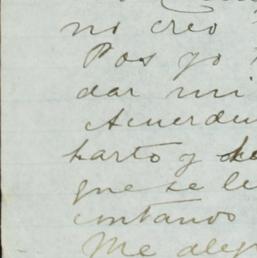 no creo
Pos yo
dar mi
Acuerdu
harto y
que se le
contando
Me aleg